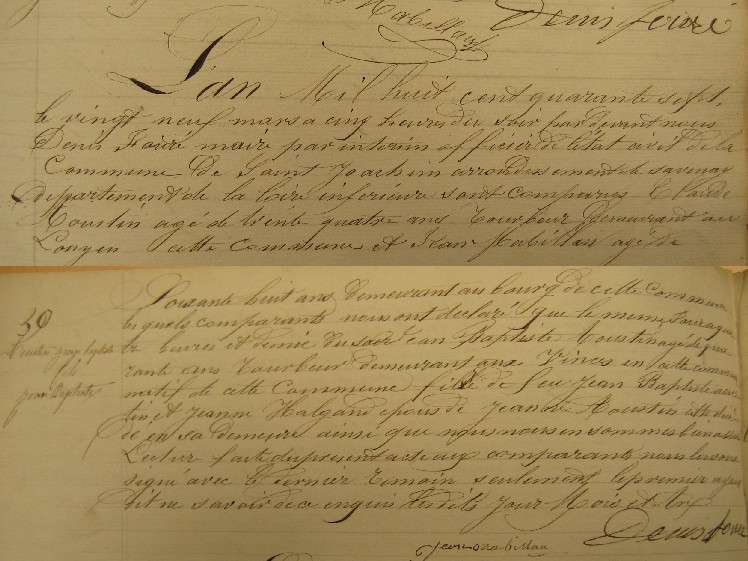 Mabillau
Denis foiré
L'an Mil huit cent quarante sept,
le vingt neuf mars a cinq heures du soir pardevant nous
Denis Foiré maire par interim officier de l'état civil de la
Commune de Saint Joachim arrondissement de savenay
departement de la loire inferieure sont comparus
Moustin agé de trente quatre ans tourbeur demeurant au
cette commune et Jean Mabillau agé de
Soixante huit ans demeurant au bourg de cette Commune
lesquels comparants nous ont declaré que le meme jour a qua
tre heures et demie du soir Jean Baptiste Moustin agé de qua
rante ans tourbeur demeurant aux en cette commune
natif de cette Commune fils de feu Jean Baptiste Mous
tin et Jeanne Halgand epoux de Jeanne Moustin est décé
dé en sa demeure ainsi que nous nous en sommes bien assuré
Lecture faite du present acte aux comparants nous l'avons
signé avec le dernier temoin seulement le premier ayant
dit ne savoir de ce enquis lesdits jour Mois et An
Denis foiré
jean mabillau
59
jean Baptiste